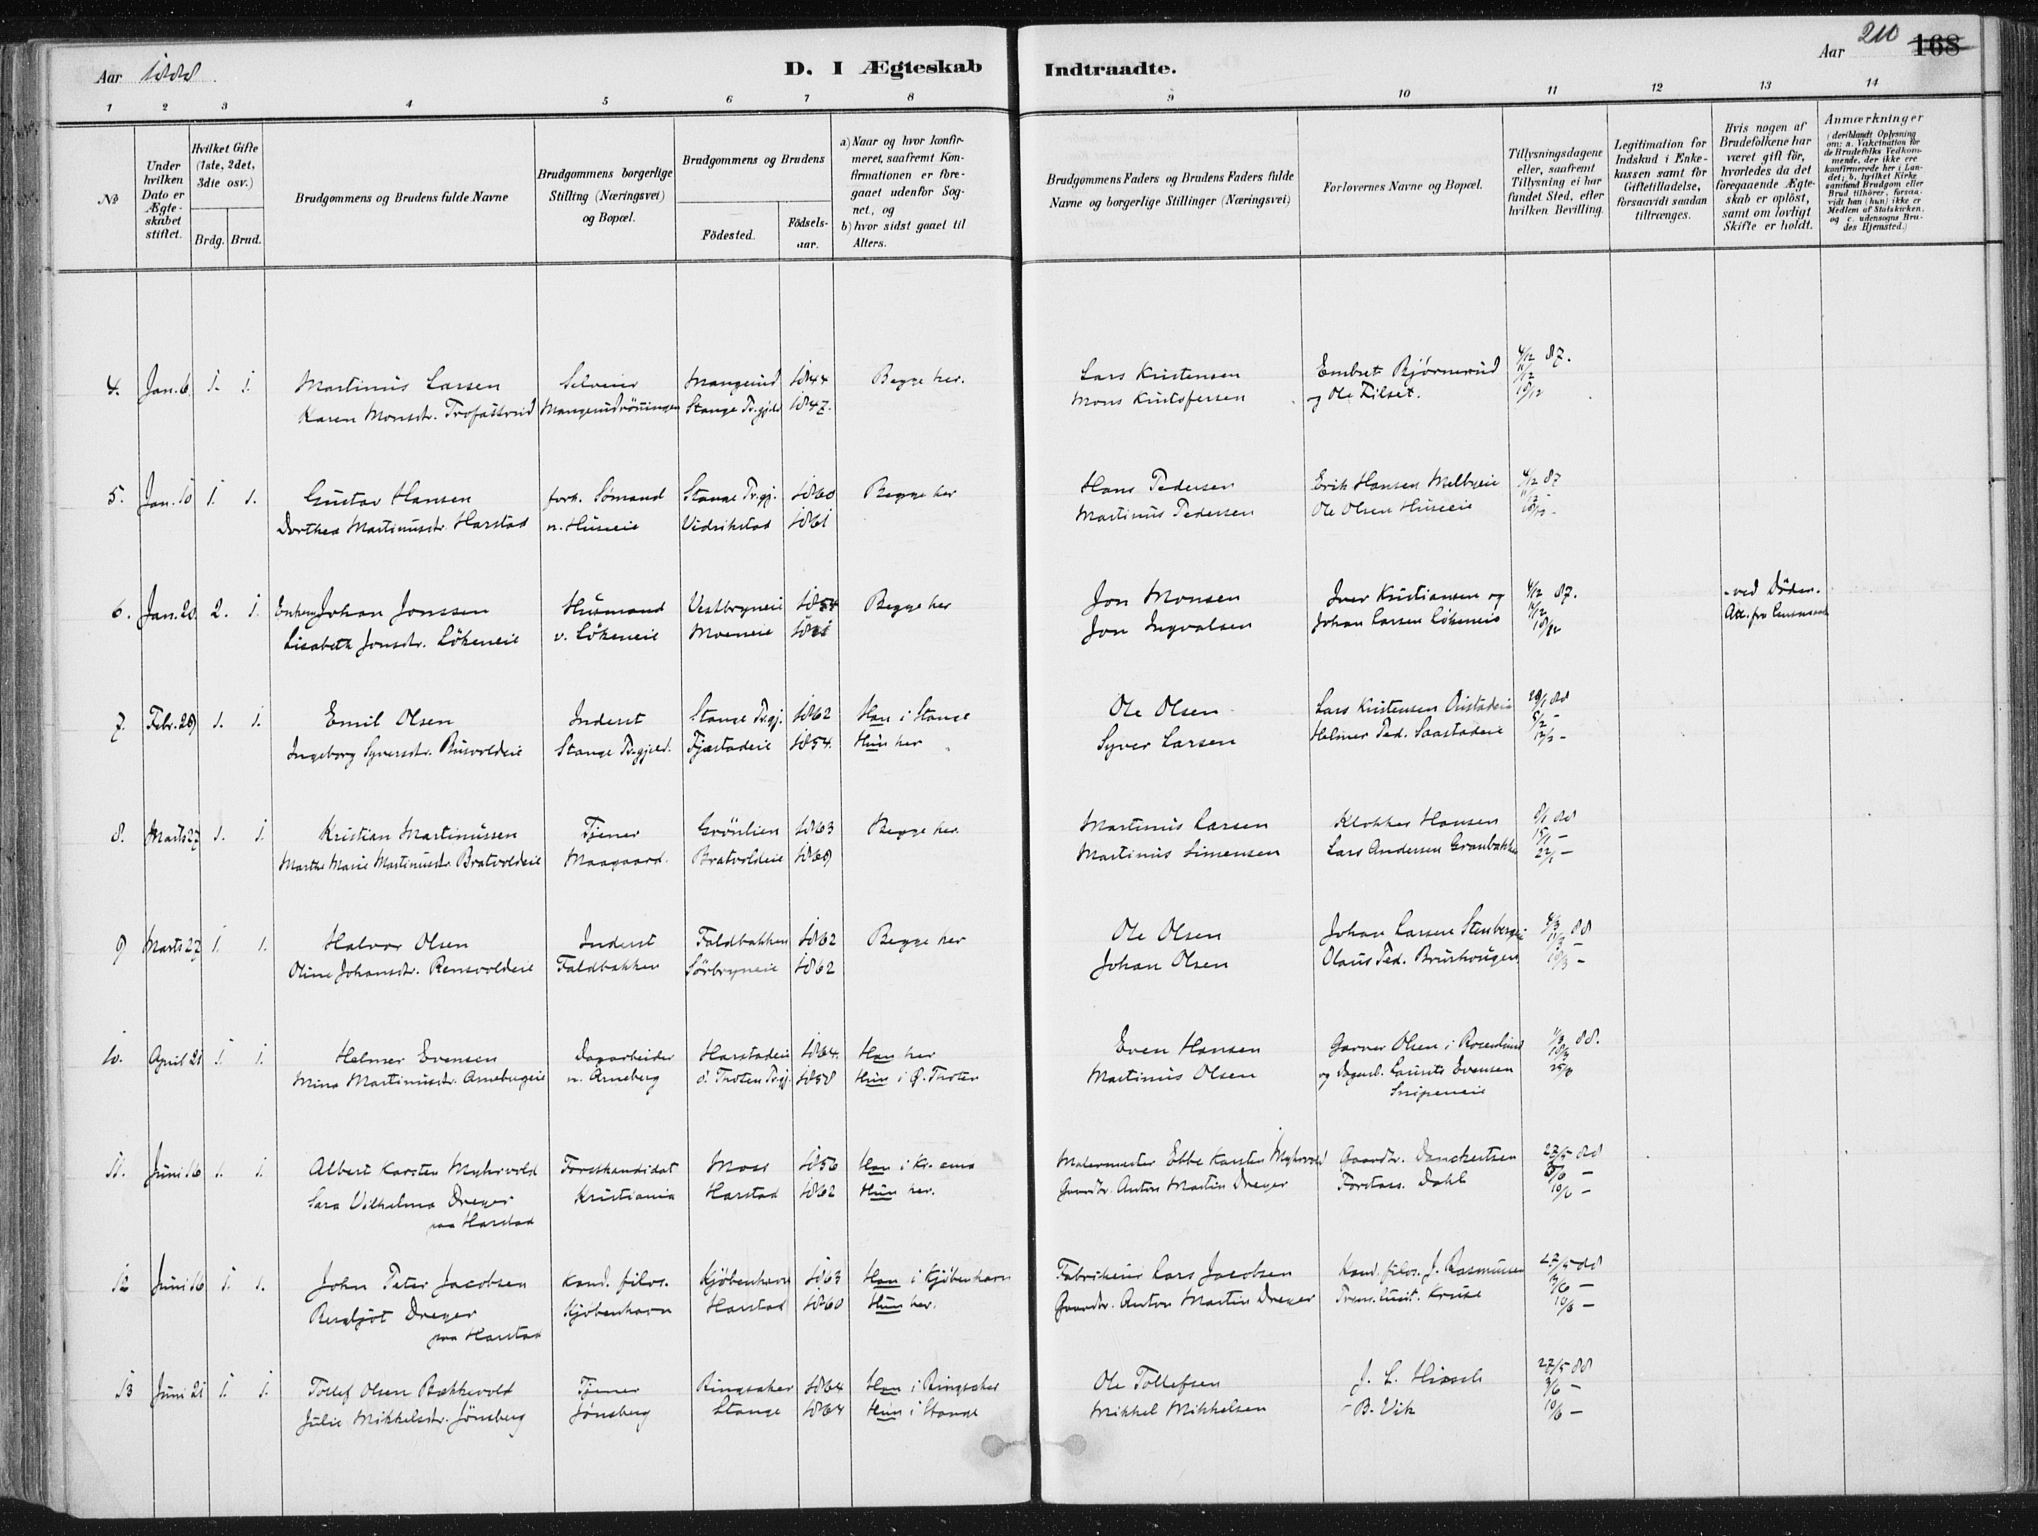 Aar 1888.
D. I Ægteskab Indtraadte.
Aar 210 168
1 2 3 4 5 6 7 8 9 10 11 12 13 14
№
Under hvilken Dato er Ægteskabet stiftet.
Hvilket Gifte (1ste, 2det, 3die osv.)
Brdg. Brud.
Brudgommens og Brudens fulde Navne
Brudgommens borgerlige Stilling (Næringsvei) og Bopæl.
Brudgommens og Brudens
Födested. Födsels-aar.
a) Naar og hvor konfirmeret, saafremt Konfirmationen er foregaaet udenfor Sognet, og
b) hvor sidst gaaet til Alters.
Brudgommens Faders og Brudens Faders fulde Navne og borgerlige Stillinger (Næringsvei)
Forlovernes Navne og Bopæl.
Tillysningsdagene eller, saafremt Tillysning ei har fundet Sted, efter hvilken Bevilling.
Legitimation for Indskud i Enkekassen samt for Giftetilladelse, forsaavidt saadan tiltrænges.
Hvis nogen af Brudefolkene har været gift för, hvorledes da det foregaaende Ægteskab er oplöst, samt om lovligt Skifte er holdt.
Anmærkninger (deriblandt Oplysning om: a. Vakcination for de Brudefolks Vedkommende, der ikke ere konfirmerede her i Landet; b. hvilket Kirkesamfund Brudgom eller Brud tilhörer, forsaavidt han (hun) ikke er Medlem af Statskirken, og c. udensogns Brudes Hjemsted.)
4. Jan. 6 1. 1. Martinus Larsen Selveier Mangerud 1844 Begge her. Lars Kristensen Embret Bjørnerud 4/12 87.
Karen Monsdr. Trofastrud Mangerudröningen Stange Pr.gjeld 1847. Mons Kristofersen og Ole Kilset. 11/12
18/12
5. Jan. 10 1. 1. Gustav Hansen forh. Sömand Stange Pr.gj. 1860 Begge her Hans Pedersen Erik Hansen Melbyeie 4/12 87
Dorthea Martinusdr. Harstad n. Huseeie Vidrikstad 1861 Martinus Pedersen Ole Olsen Huseeie 11/12 -
18/12 -
6. Jan. 20. 2. 1. Enkem. Johan Jonssen Husmand Vestbryneie 1854 Begge her Jon Monsen Iver Kristiansen og 4/12 87. - ved Döden.
Lisabeth Jonsdr. Lökeneie v. Lökeneie Moeneie Jon Ingvalsen Johan Larsen Lökeneie 11/12 Att. fra Lensmand
18/12
7. Febr. 29 1. 1. Emil Olsen Inderst Stange Pr.gj. 1862 Han i Stange Ole Olsen Lars Kristensen 29/1 88
Ingeborg Syversdr. Busvoldeie Stange Pr.gjeld. Fjæstadeie 1854. Hun her Syver Larsen Helmer Ped. Saastadeie 5/2 -
12/2 -
8. Marts 27 1. 1. Kristian Martinussen Tjener Grönlien 1863 Begge her. Martinus Larsen Klokker Hansen 8/1 88
Marthe Marie Martinusdr. Bratvoldeie Maagaard. Bratvoldeie 1869 Martinus Simensen Lars Andersen Granbakken 15/1 -
22/1 -
9 Marts 27 1. 1. Halvor Olsen Inderst Faldbakken 1862 Begge her Ole Olsen Johan Larsen Stenbergeie 4/3 88
Oline Johansdr. Rensvoldeie Faldbakken Sörbryneie 1862 Johan Olsen Olaus Ped. Brushougen 11/3 -
18/3 -
10. April 21 1 1. Helmer Evensen Dagarbeider Harstadeie 1864. Han her Even Hansen Garver Olsen i Rosenlund 11/3 88.
Mina Martinusdr. Arnebergeie n. Arneberg ö. Thoten Pr.gj. 1858 Hun i Ø. Thoten Martinus Olsen og Dagarb. Laurits Evensen 18/3
Snipeneie 25/3
11. Juni 16 1. 1. Albert Karsten Myhrvold Forstkandidat Moss 1856 Han i Kr.ania Malermester Ebbe Karsten Myhrvold Gaardbr. Danckertsen 27/5 88
Sara Vilhelma Dreyer Kristiania Harstad 1862 Hun her. Gaardbr. Anton Martin Dreyer Forstass. Dahl 3/6 -
paa Harstad 10/6 -
12 Juni 16 1. 1. John Peter Jacobsen Kand. filos. Kjöbenhavn 1863 Han i Kjöbenhavn Fabrikeier Lars Jacobsen Kand. filos. J. Rasmussen 27/5 88
Bergljöt Dreyer Kjöbenhavn Harstad 1860 Hun her. Gaardbr. Anton Martin Dreyer Kruse 3/6 -
paa Harstad 10/6 -
13 Juni 21 1. 1. Tollef Olsen Bækkevold Tjener Ringsaker 1864 Han i Ringsaker Ole Tollefsen J. L. Hirsch 27/5 88
Julie Mikkelsdr. Jönsberg Jönsberg Stange 1864 Hun i Stange Mikkel Mikkelsen - B. Vik 3/6 -
10/6 -